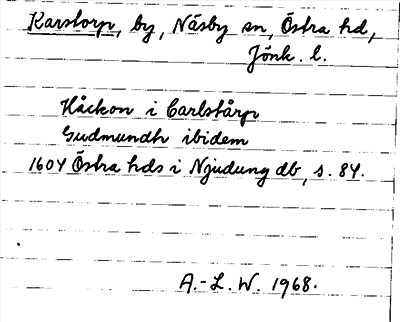 Karstorp, by, Näsby sn, Östra hd,
Jönk. l.
Håckon i Carlstårp
Gudmundh ibidem
1604 Östra hds i Njudung db, s. 84.
A.-L. W. 1968.